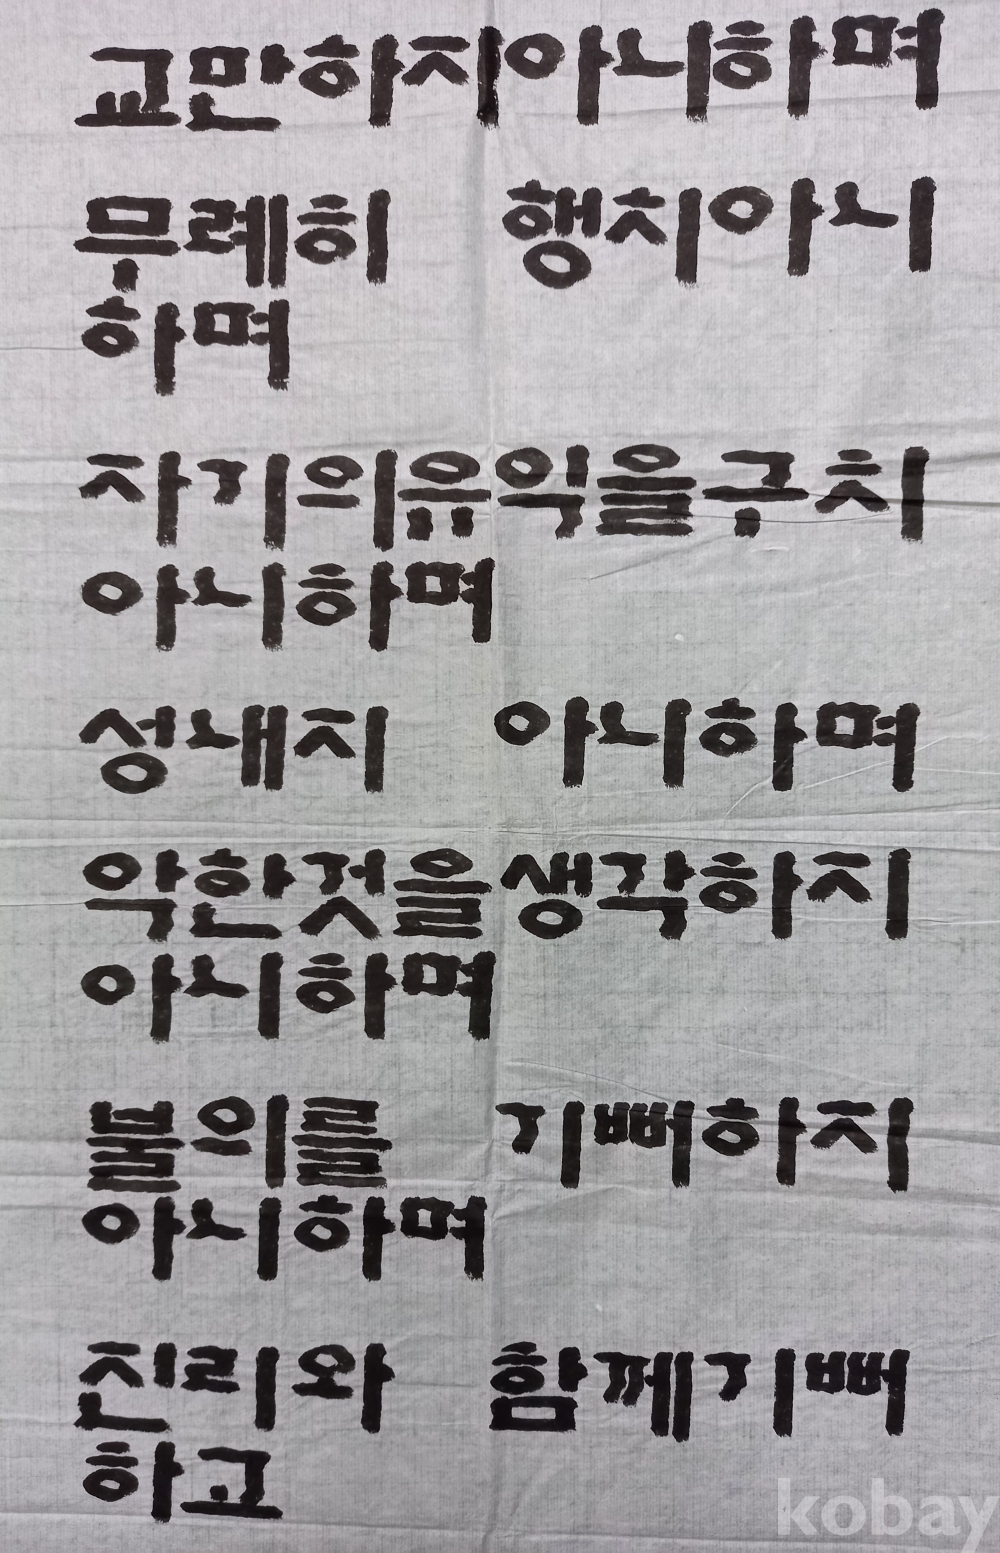 교만하지아니하며
무례히 행치아니
하며
자기의유익을구치
아니하며
성내지 아니하며
악한것을생각하지
아니하며
불의를 기뻐하지
아니하며
진리와 함께기뻐
하고
kobay